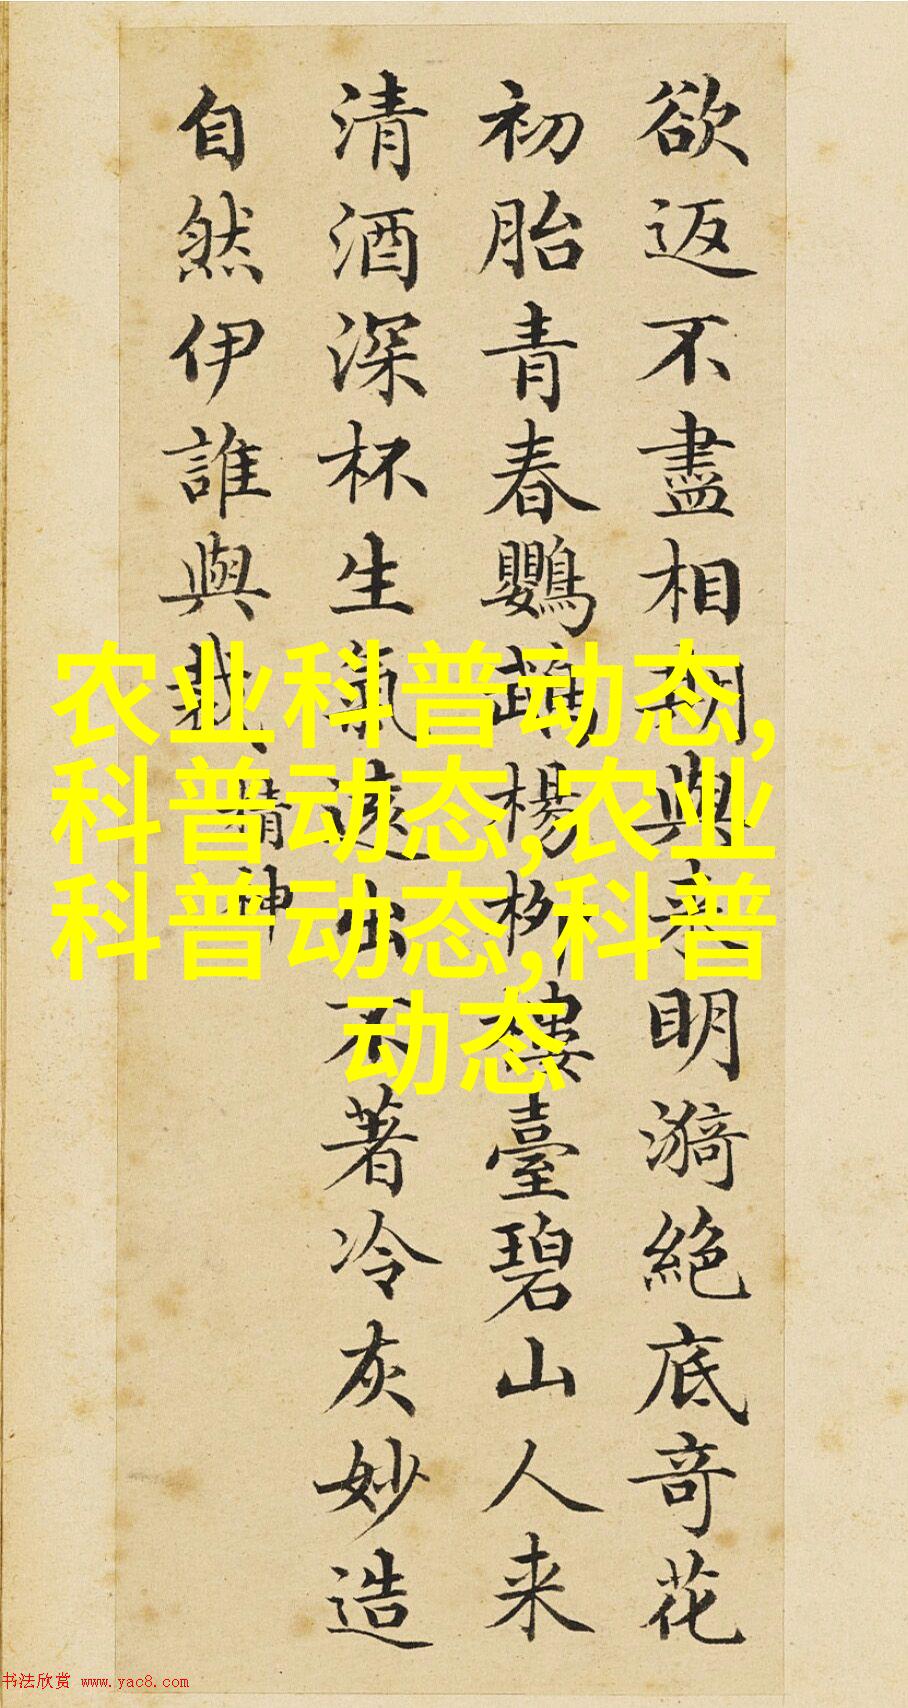 欲返不盡相期與来明漪絕底奇花
初胎青春鸚鵡楊柳樓臺碧山人来
清酒深杯生氣遠出不著冷灰妙造
自然伊誰與裁
精神
农业科普动态,
科普动态,农业
科普动态,科普
动态
书法欣赏 www.yac8.com